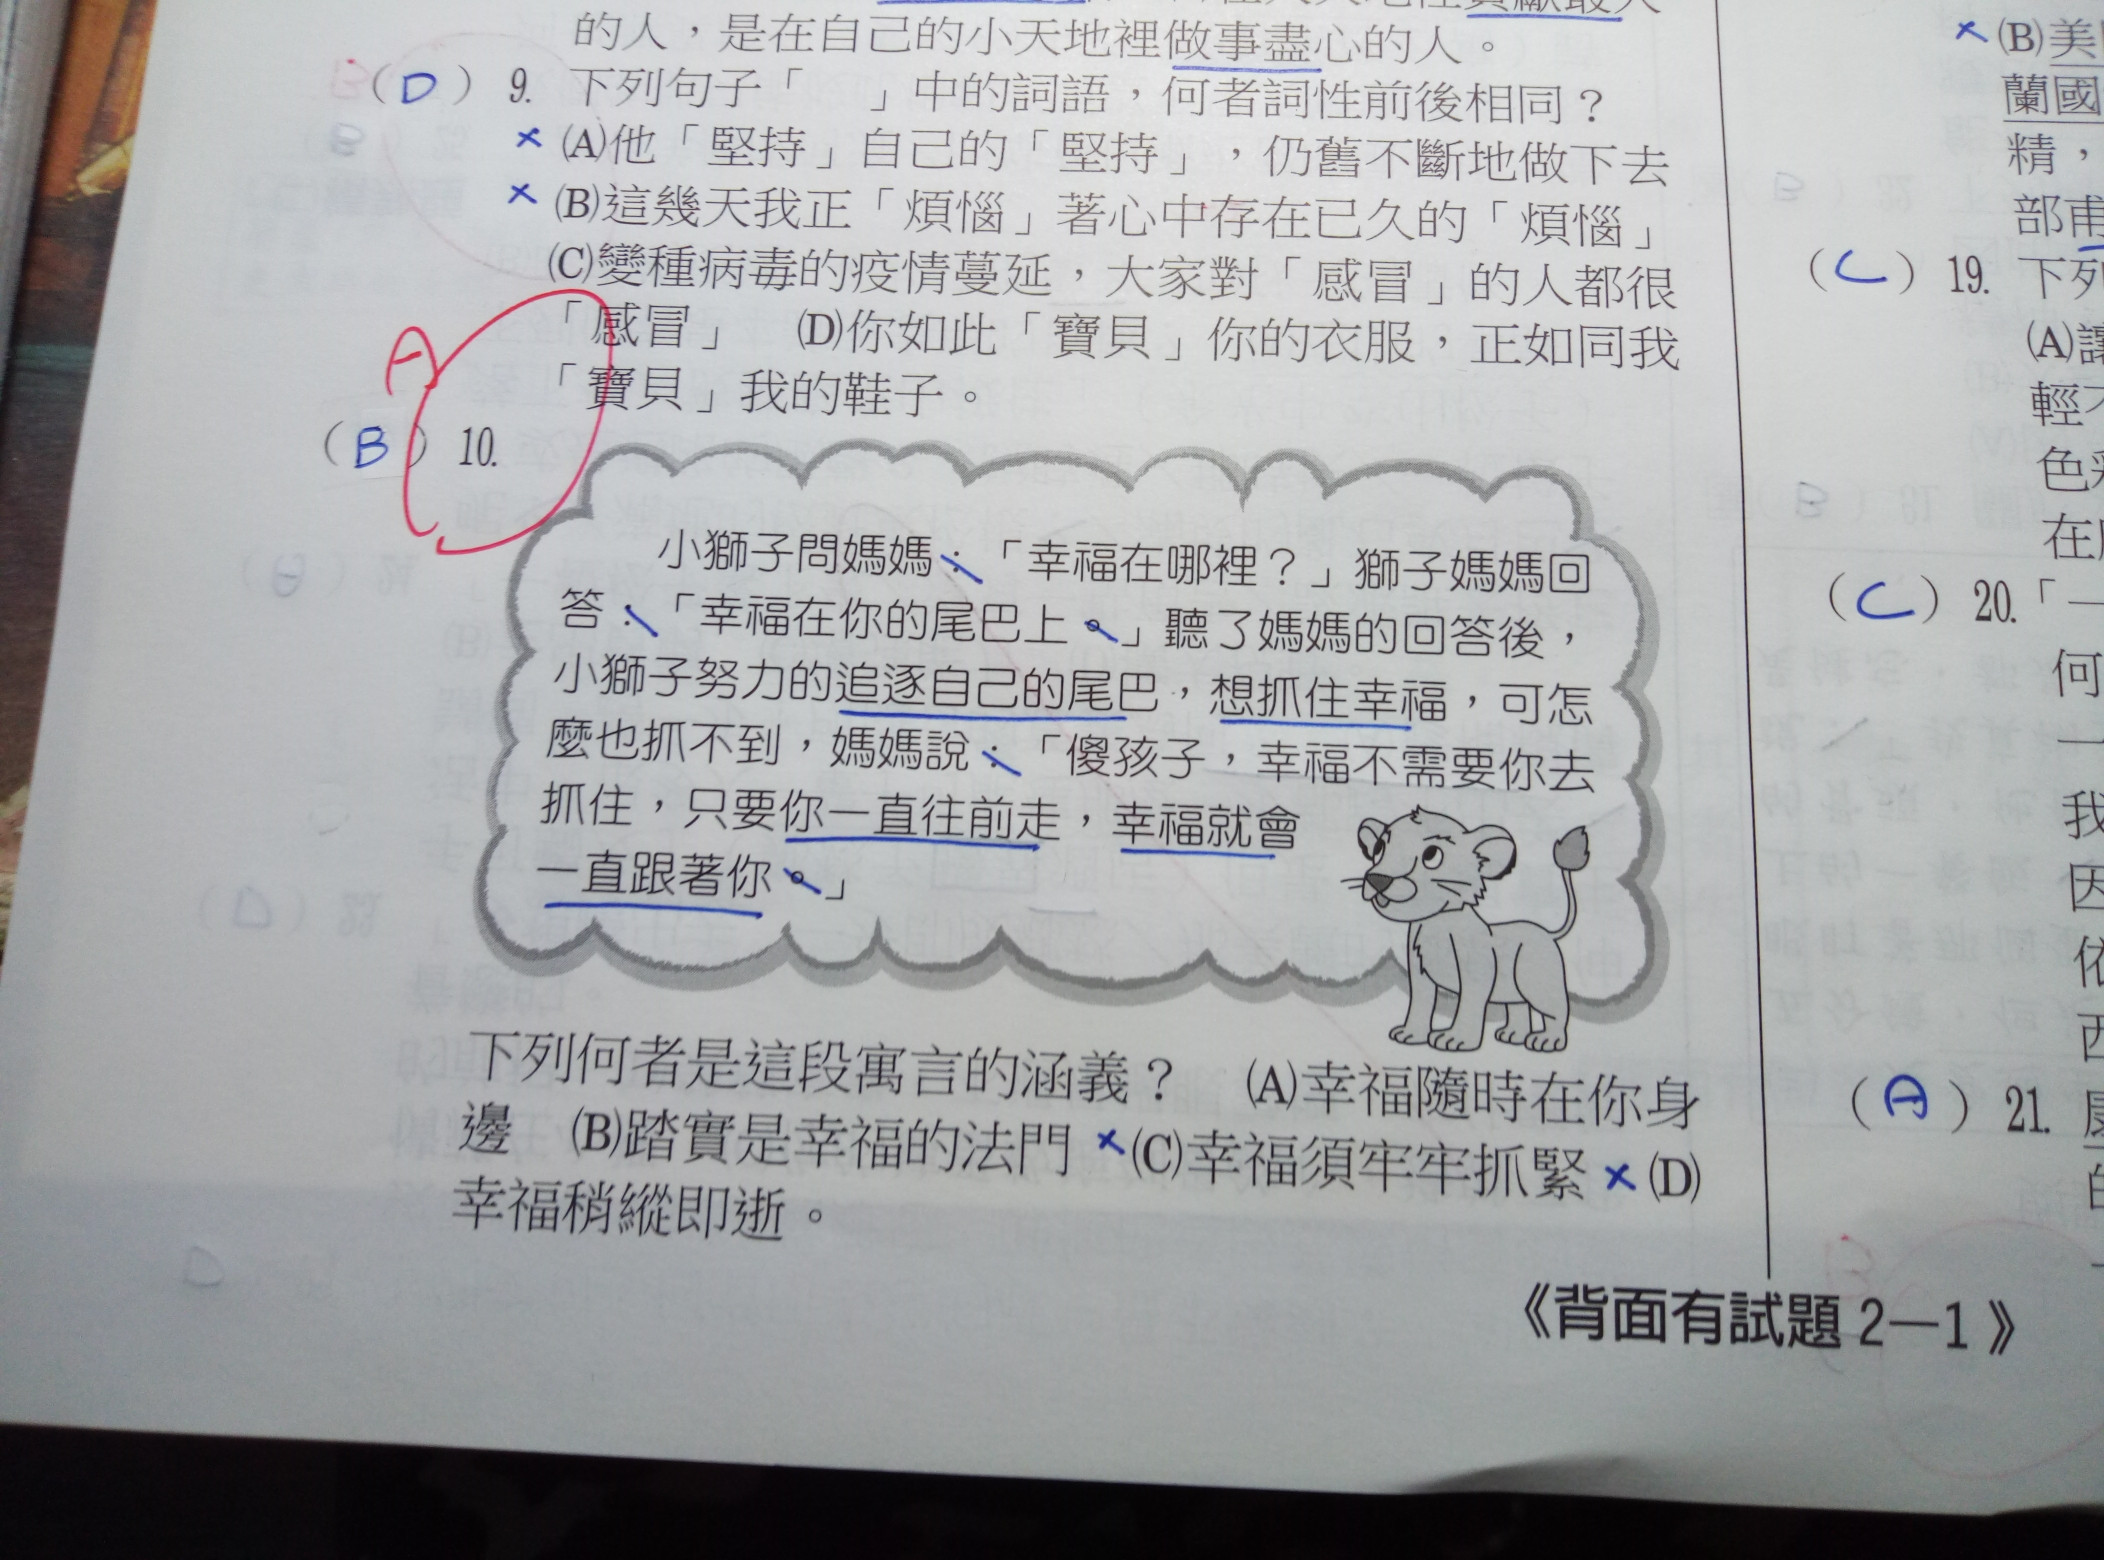 的人，是在自己的小天地裡做事盡心的人。
（D）9. 下列句子「　」中的詞語，何者詞性前後相同？
×(A)他「堅持」自己的「堅持」，仍舊不斷地做下去
×(B)這幾天我正「煩惱」著心中存在已久的「煩惱」
(C)變種病毒的疫情蔓延，大家對「感冒」的人都很
「感冒」　(D)你如此「寶貝」你的衣服，正如同我
「寶貝」我的鞋子。
A
（B）10.
小獅子問媽媽：「幸福在哪裡？」獅子媽媽回
答：「幸福在你的尾巴上。」聽了媽媽的回答後，
小獅子努力的追逐自己的尾巴，想抓住幸福，可怎
麼也抓不到，媽媽說：「傻孩子，幸福不需要你去
抓住，只要你一直往前走，幸福就會
一直跟著你。」
下列何者是這段寓言的涵義？　(A)幸福隨時在你身
邊　(B)踏實是幸福的法門　×(C)幸福須牢牢抓緊　×(D)
幸福稍縱即逝。
《背面有試題 2—1》
×(B)美
蘭國
精，
部甫
（C）19. 下列
(A)讓
輕不
色彩
在
（C）20.「一
何
一
我
因
依
西
（A）21.
的